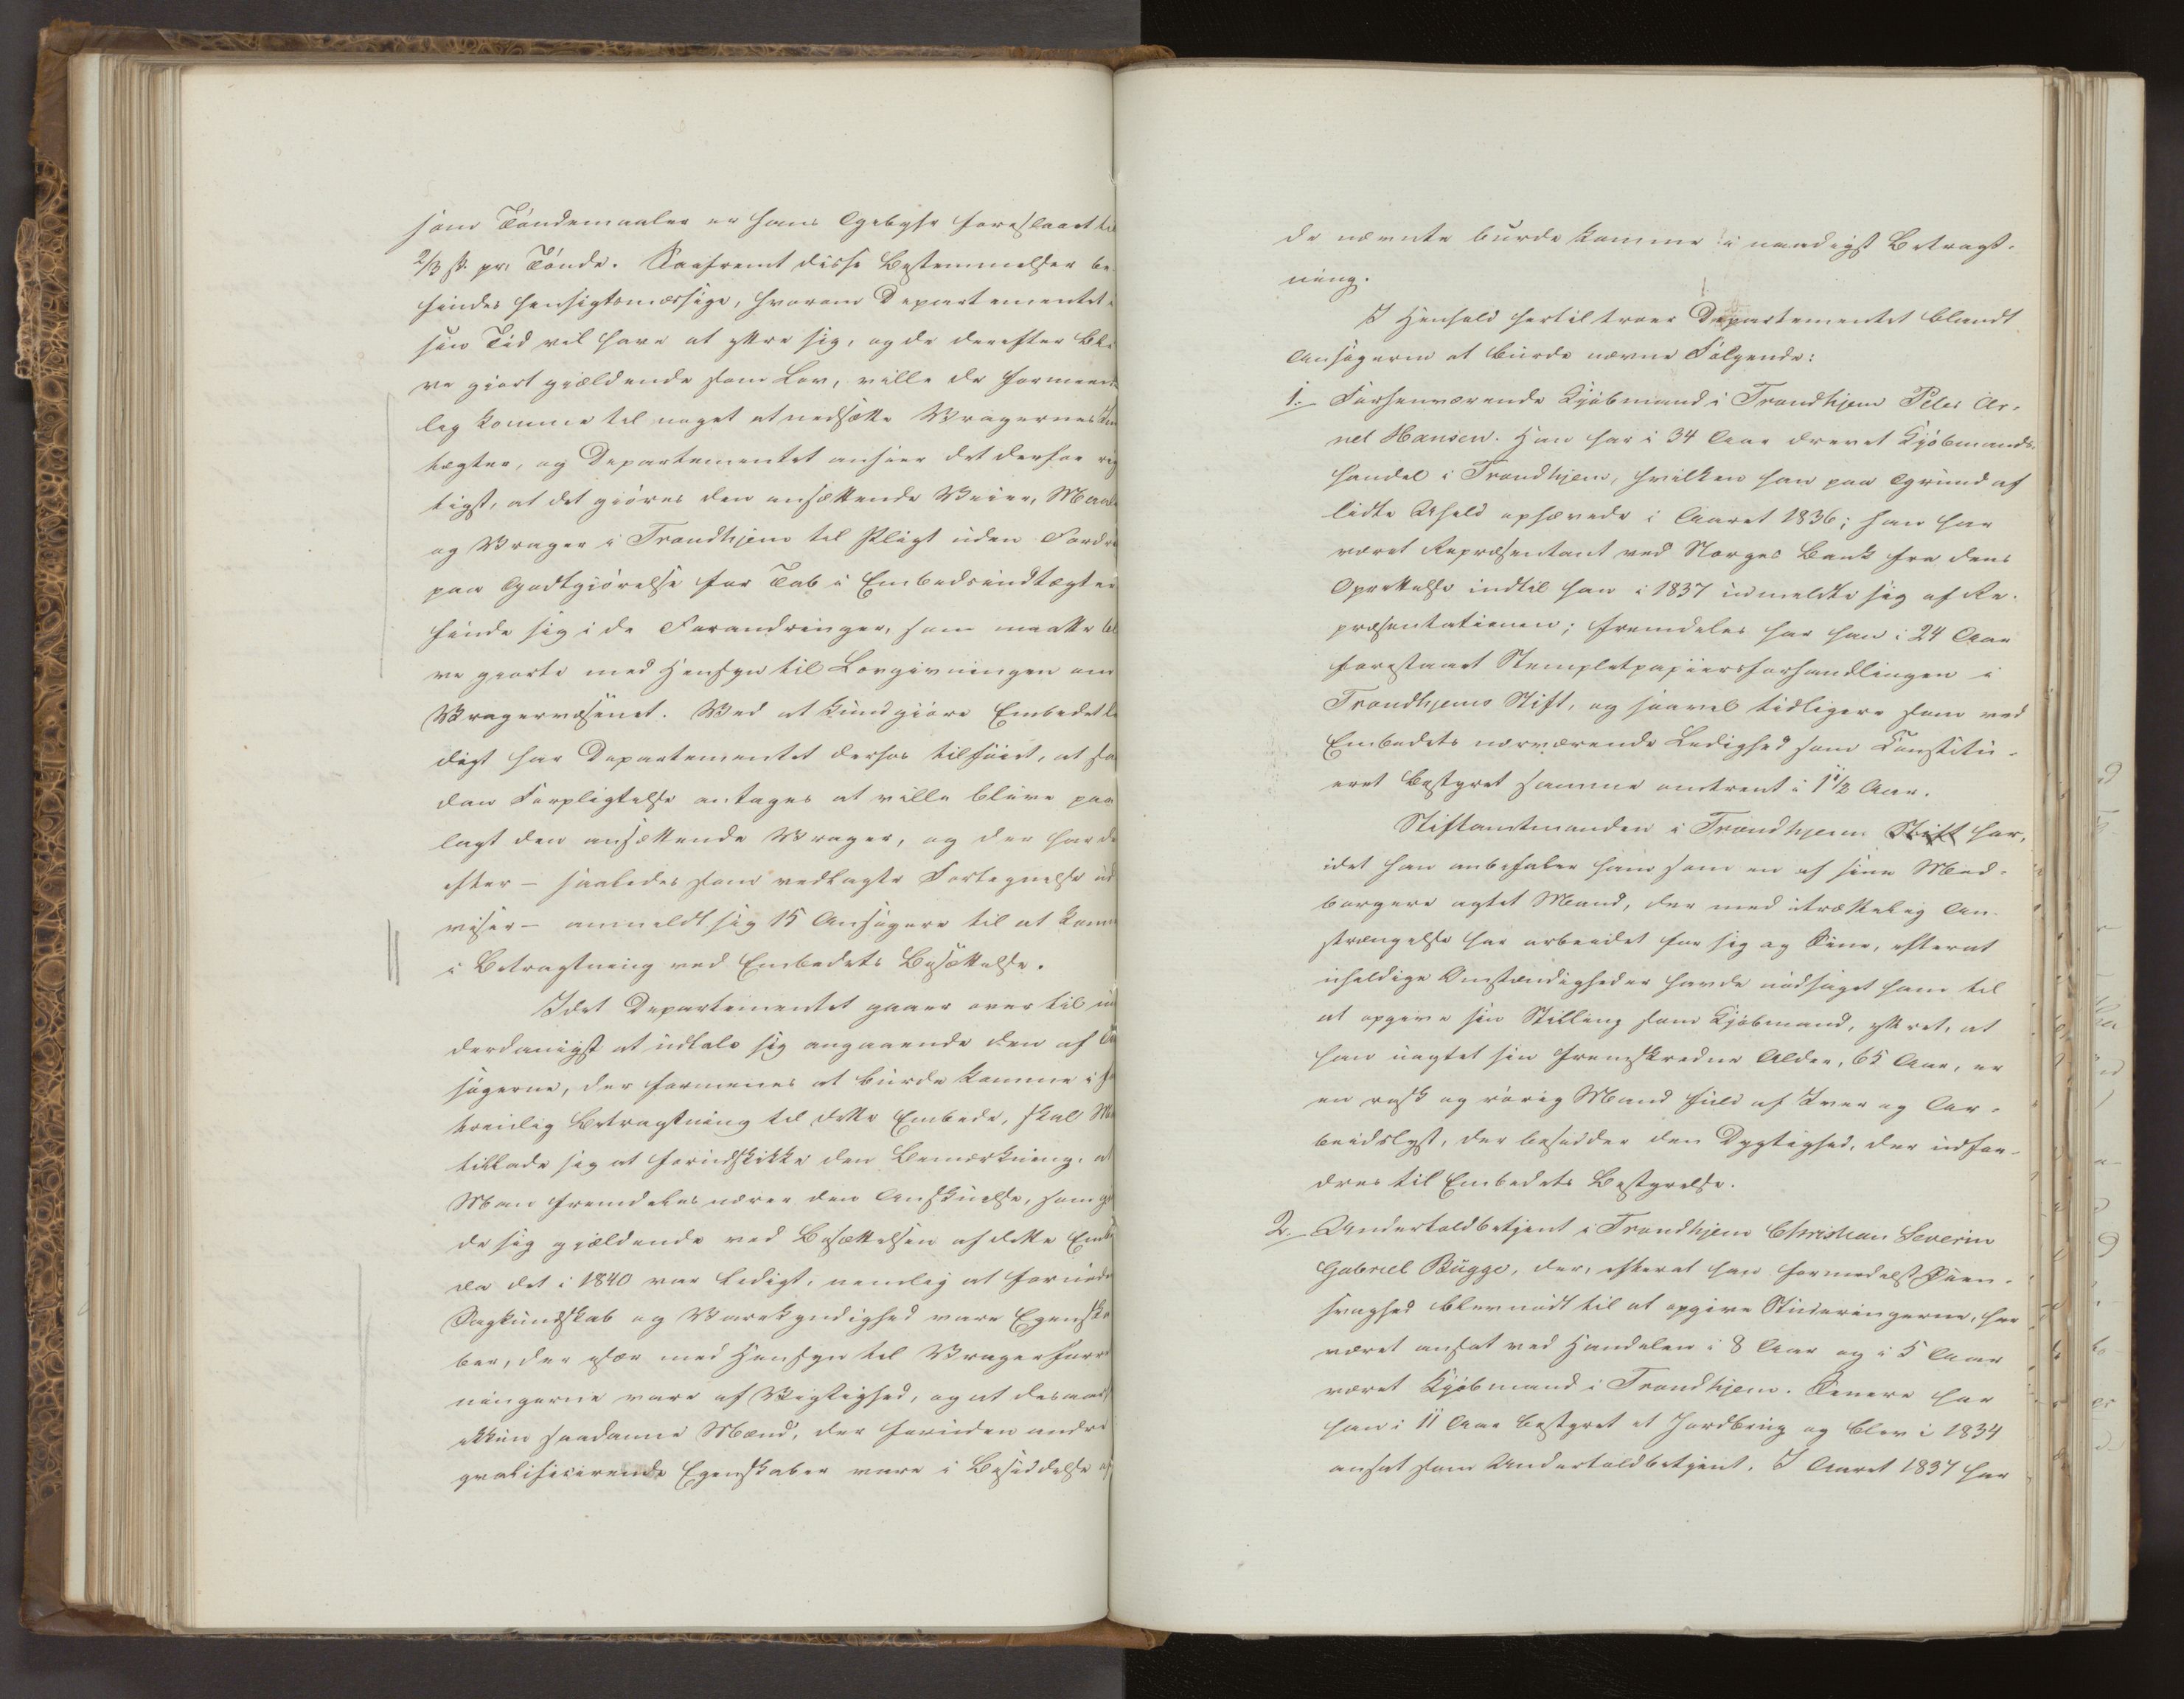 som Tøndemaaler er hans Gebyhr foreslaaet til
2/3 ß pr. Tønde. Saafremt disse Bestemmelser be-
findes hensigtsmæssige, hvorom Departementet i
sin Tid vil have at yttre sig, og de derefter bli
ve gjort gjældende som Lov, ville de formeent
lig komme til noget at nedsætte Vragernes Ind
tægter, og Departementet anseer det derfor rig
tigst, at det gjøres den ansættende Veier, Maaler
og Vrager i Trondhjem til Pligt uden Fordring
paa Godtgjørelse for Tab i Embedsindtægter
finde sig i de Forandringer, som maatte bli
ve gjorte med Hensyn til Lovgivningen om
Vragervæsenet. Ved at kundgjøre Embedet le
digt har Departementet derhos tilføiet, at saa
dan Forpligtelse antages at ville blive paa
lagt den ansættende Vrager, og der har der
efter – saaledes som vedlagte Fortegnelse ud
viser – anmeldt sig 15 Ansøgere til at komme
i Betragtning ved Embedets Besættelse.
Idet Departementet gaaer over til un
derdanigst at udtale sig angaaende den af An
søgerne, der formenes at burde komme i for
trinlig Betragtning til dette Embede, skal Man
tillade sig at forudskikke den Bemærkning, at
Man fremdeles nærer den Anskuelse, som gjor
de sig gjældende ved Besættelsen af dette Embede
da det i 1840 var ledigt, nemlig at foruden
Sagkundskab og Varekyndighed vare Egenska
ber, der især med Hensyn til Vragerforret
ningerne vare af Vigtighed, og at desaarsag
ikkun saadanne Mænd, der foruden andre
qvalificerende Egenskaber vare i Besiddelse af
de nævnte burde komme i naadigst Betragt-
ning.
I Henhold hertil troer Departementet blandt
Ansøgerne at burde nævne Følgende:
1. Forhenværende Kjøbmand i Trondhjem Peter Ar-
net Hansen. Han har i 34 Aar drevet Kjøbmands-
handel i Trondhjem, hvilken han paa Grund af
lidte Uheld ophævede i Aaret 1836; han har
været Repræsentant ved Norges Bank fra dens
Oprettelse indtil han i 1837 udmeldte sig af Re-
præsentationen; fremdeles har han i 24 Aar
forestaaet Stempletpapiirsforhandlingen i
Trondhjems Stift, og saavel tidligere som ved
Embedets nærværende Ledighed som Constitu-
eret bestyret samme omtrent i 1 1/2 Aar.
Stiftamtmanden i Trondhjem Stift har,
idet han anbefaler ham som en af sine Med-
borgere agtet Mand, der med utrættelig An-
strængelse har arbeidet for sig og Sine, efterat
uheldige Omstændigheder havde nødsaget ham til
at opgive sin Stilling som Kjøbmand, yttret, at
han uagtet sin fremskredne Alder, 65 Aar, er
en rask og rørig Mand fuld af Iver og Ar-
beidslyst, der besidder den Dygtighed, der udfor-
dres til Embedets Bestyrelse.
2. Undertoldbetjent i Trondhjem Christian Severin
Gabriel Bügge, der, efterat han formedelst Øien-
svaghed blev nødt til at opgive Studeringerne, har
været ansat ved Handelen i 8 Aar og i 5 Aar
været Kjøbmand i Trondhjem. Senere har
han i 11 Aar bestyret et Jordbrug og blev i 1834
ansat som Undertoldbetjent. I Aaret 1837 har